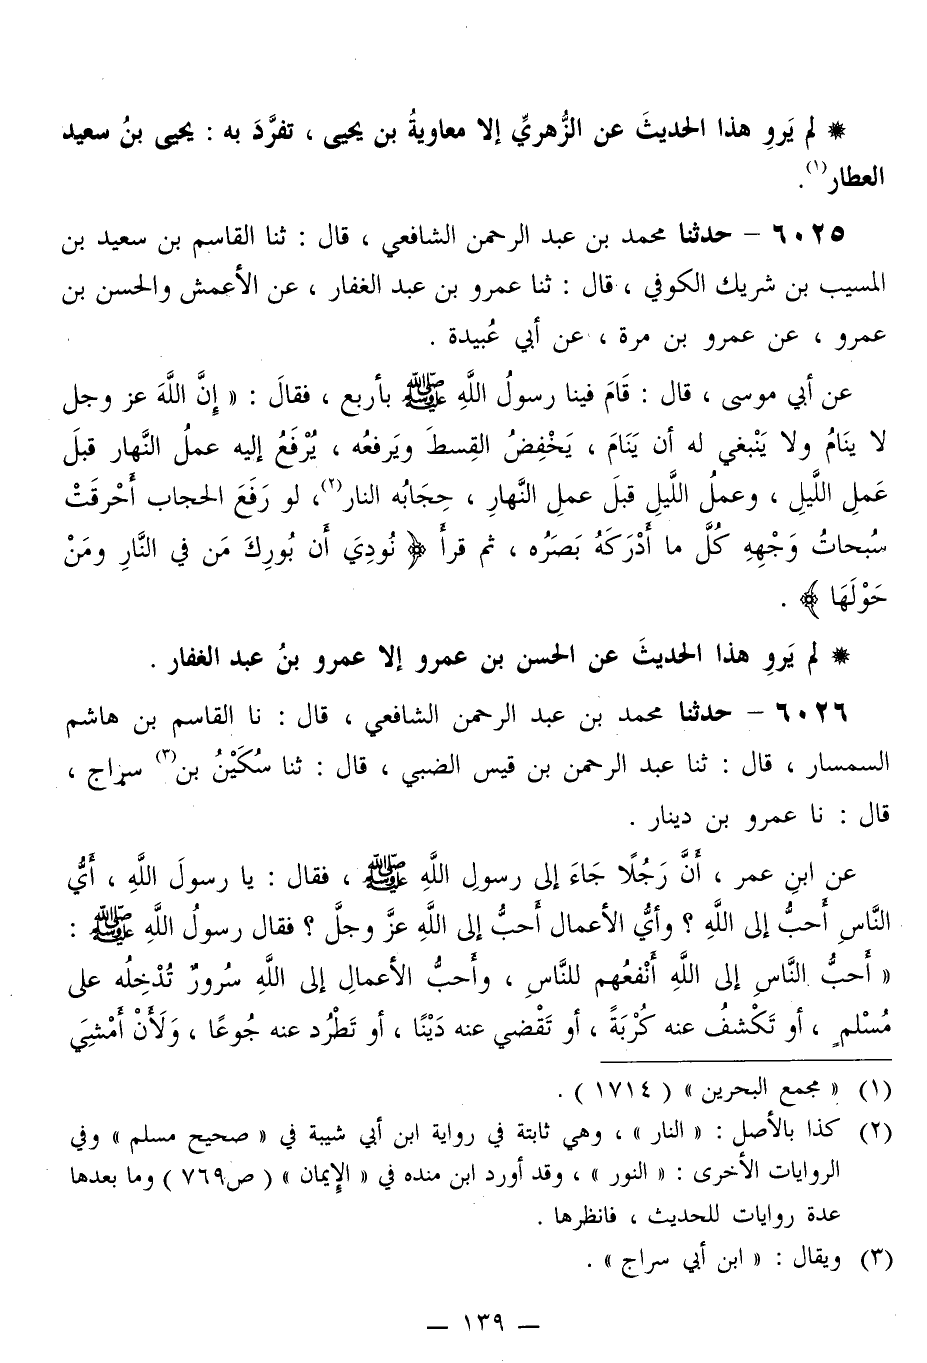 * لم يَروِ هذا الحديثَ عن الزُّهريِّ إلا معاويةُ بن يحيى ، تفرَّدَ به : يحيى بنُ سعيد
العطار(١).
٦٠٢٥ – حدثنا محمد بن عبد الرحمن الشافعي ، قال : ثنا القاسم بن سعيد بن
المسيب بن شريك الكوفي ، قال : ثنا عمرو بن عبد الغفار ، عن الأعمش والحسن بن
عمرو ، عن عمرو بن مرة ، عن أبي عُبيدة .
عن أبي موسى ، قال : قَامَ فينا رسولُ اللَّهِ ﷺ بأربع ، فقالَ : « إِنَّ اللَّهَ عز وجل
لا ينَامُ ولا يَنْبغي له أن يَنَامَ ، يَخْفِضُ القِسطَ ويَرفعُه ، يُرْفَعُ إليه عملُ النَّهار قبلَ
عَملِ اللَّيلِ ، وعملُ اللَّيلِ قبلَ عملِ النَّهارِ ، حِجَابُه النار(٢)، لو رَفَعَ الحجاب أَحْرقَتْ
سُبحاتُ وَجْهِهِ كُلَّ ما أَدْرَكَهُ بَصَرُه ، ثم قرأ ﴿ نُودِيَ أَن بُورِكَ مَن في النَّارِ ومَنْ
حَوْلَهَا ﴾ .
* لم يَروِ هذا الحديثَ عن الحسن بن عمرو إلا عمرو بنُ عبد الغفار .
٦٠٢٦ – حدثنا محمد بن عبد الرحمن الشافعي ، قال : نا القاسم بن هاشم
السمسار ، قال : ثنا عبد الرحمن بن قيس الضبي ، قال : ثنا سُكَيْنُ بن(٣) سراج ،
قال : نا عمرو بن دينار .
عن ابنِ عمر ، أَنَّ رَجُلًا جَاءَ إلى رسولِ اللَّهِ ﷺ ، فقال : يا رسولَ اللَّهِ ، أَيُّ
النَّاسِ أَحبُّ إلى اللَّهِ ؟ وأيُّ الأعمال أَحبُّ إلى اللَّهِ عزَّ وجلَّ ؟ فقال رسولُ اللَّهِ ﷺ :
« أَحبُّ النَّاسِ إلى اللَّهِ أَنْفعُهم للنَّاسِ ، وأَحبُّ الأعمالِ إلى اللَّهِ سُرورٌ تُدْخِلُه على
مُسْلمٍ ، أو تَكْشفُ عنه كُرْبَةً ، أو تَقْضي عنه دَيْنًا ، أو تَطْرُد عنه جُوعًا ، وَلَأَنْ أَمْشِيَ
(١) « مجمع البحرين » ( ١٧١٤ ) .
(٢) كذا بالأصل : « النار » ، وهي ثابتة في رواية ابن أبي شيبة في « صحيح مسلم » وفي
الروايات الأخرى : « النور » ، وقد أورد ابن منده في « الإيمان » ( ص٧٦٩ ) وما بعدها
عدة روايات للحديث ، فانظرها .
(٣) ويقال : « ابن أبي سراج » .
– ١٣٩ –